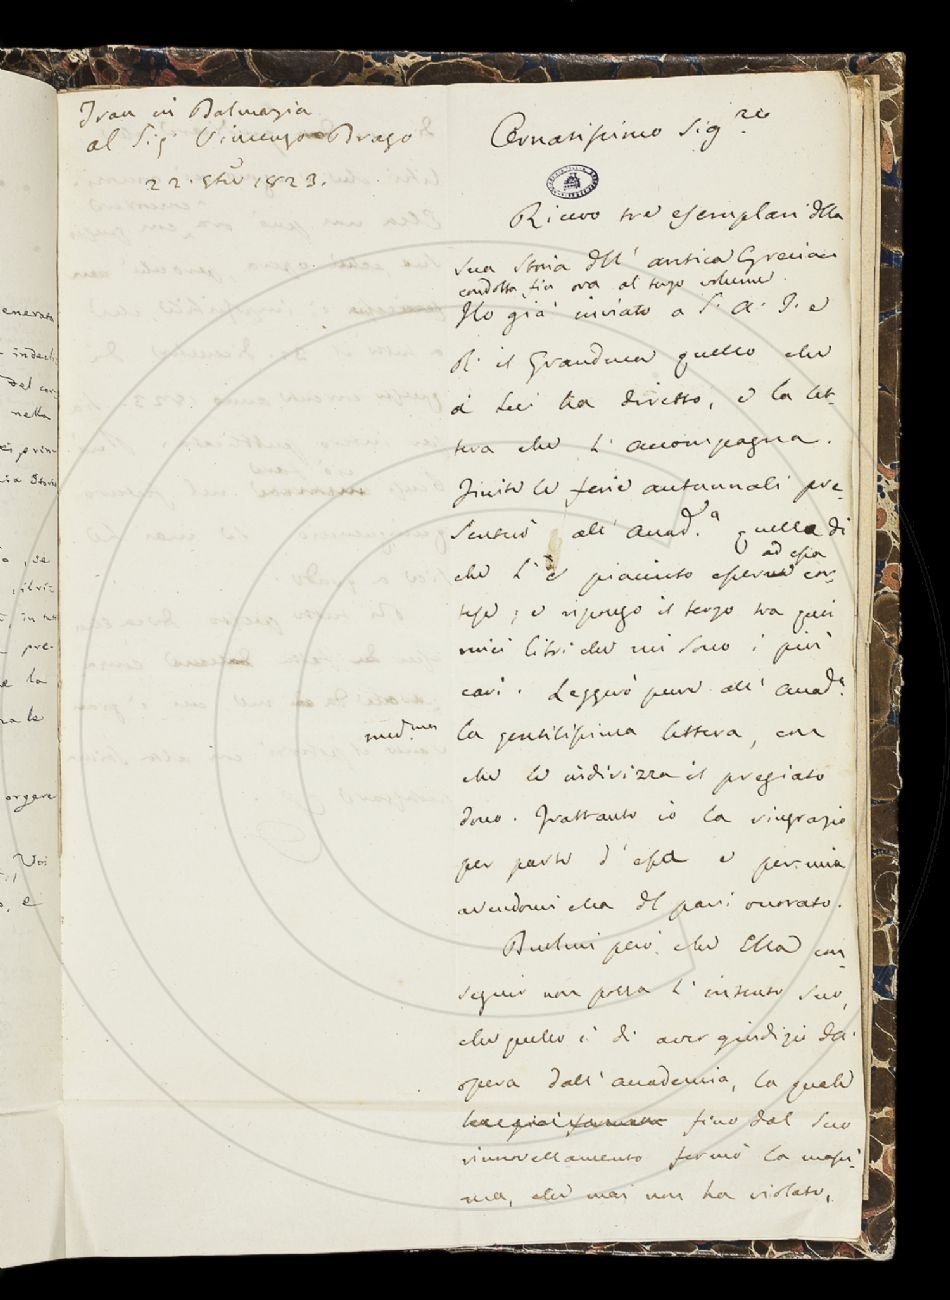 Trau in Dalmazia
al Sig.r Vincenzo Drago
22. 8bre 1823.
Ornatissimo Sig.re
Ricevo tre esemplari della
sua Storia dell' antica Grecia
condotta fin ora al terzo volume
Ho già inviato a S. A. I. e
R. il Granduca quello che
a Lui ha diretto, e la let-
tera che l' accompagna.
Finite le ferie autunnali pre-
senterò all' Accad.a quello di
che l' è piaciuto
ad essa
cor-
tese; e ripongo il terzo tra quei
miei libri che mi sono i più
cari. Leggerò pure all' Accad.a
med.ma
la gentilissima lettera, con
che le indirizza il pregiato
dono. Frattanto io la ringrazio
per parte d' essa e per mia
avendomi ella del pari onorato.
Duolmi però che Ella con-
seguir non possa l' intento suo,
che quello è di aver giudizio dell'
opera dall' accademia, la quale
fino dal suo
rinnovellamento fermò la massi-
ma, che mai non ha violato,
enerato
indeli
Del cor
nella
ei prin
ia Storia
se
in
pre-
e la
ra le
orgere
Voi
e